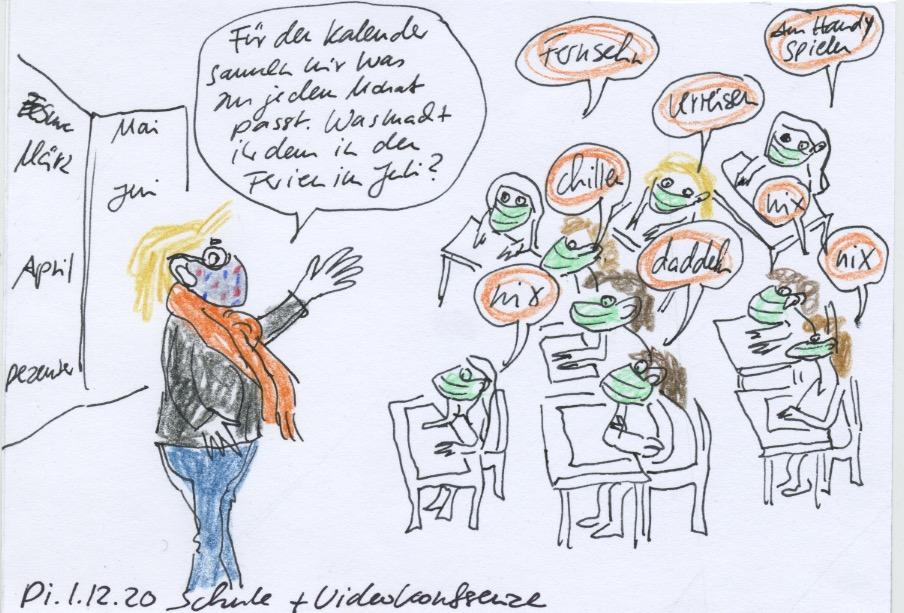 März
April
Dezember
Mai
Juni
Für den Kalender
sammeln wir was
zu jedem Monat
passt. Was macht
ihr denn in den
Ferien im Juli?
Fernsehn
Am Handy
spielen
verreisen
chillen
nix
nix
daddeln
nix
Di. 1.12.20 Schule + Videokonferenz